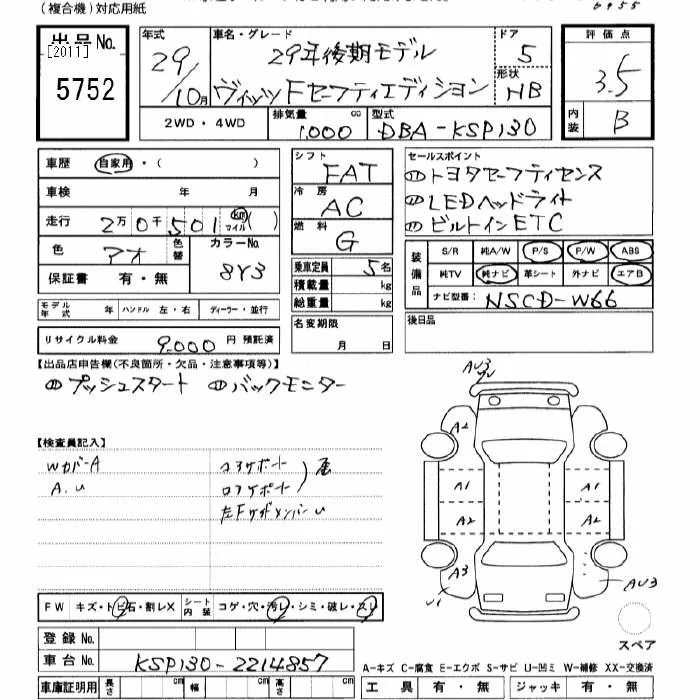 (複合機)対応用紙
出品No. [2011] 5752
年式 29/10月 車名・グレード 29年後期モデル ヴィッツ Fセーフティエディション ドア 5 形状 HB
評価点 3.5
内装 B
2WD・4WD 排気量 1,000 cc 型式 DBA-KSP130
車歴 自家用・( )
車検 年 月
走行 2万0千501 km マイル ( )
色 アオ 色替 カラーNo. 8Y3
保証書 有・無
モデル年式 年 ハンドル 左・右 ディーラー・並行
リサイクル料金 9,000 円 預託済
シフト FAT
冷房 AC
燃料 G
乗車定員 5名
積載量 kg
総重量 kg
名変期限 月 日
セールスポイント
① トヨタセーフティセンス
② LEDヘッドライト
③ ビルトインETC
装備品 S/R 純A/W P/S P/W ABS
純TV 純ナビ 革シート 外ナビ エアB
ナビ型番: NSCD-W66
後日品
【出品店申告欄(不良箇所・欠品・注意事項等)】
プッシュスタート バックモニター
【検査員記入】
Wカバー A コアサポート
A.U ロアサポート
左Fサイドメンバー U
AU3
A2
A1 A1
A2 A2
A3 AU3
U1
FW キズ・トビ石・割レX シート内装 コゲ・穴・汚レ・シミ・破レ・スレ
登録No.
車台No. KSP130-2214857
スペア
A-キズ C-腐食 E-エクボ S-サビ U-凹ミ W-補修 XX-交換済
車庫証明用 長さ cm 幅 cm 高さ cm 工具 有・無 ジャッキ 有・無